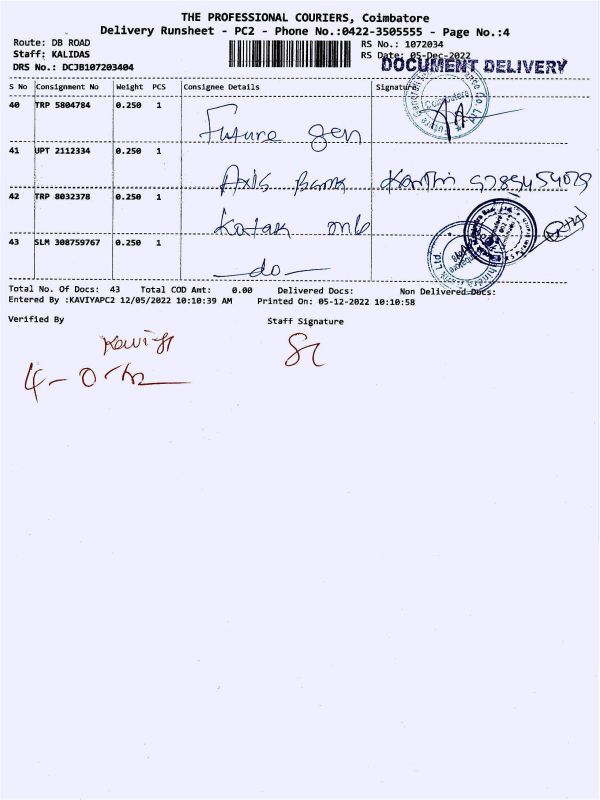 THE PROFESSIONAL COURIERS, Coimbatore
Delivery Runsheet - PC2 - Phone No.:0422-3505555 - Page No.:4
Route: DB ROAD
Staff: KALIDAS
DRS No.: DCJB107203404
RS No.: 1072034
RS Date: 05-Dec-2022
DOCUMENT DELIVERY
S No Consignment No Weight PCS Consignee Details Signature
40 TRP 5804784 0.250 1
Future Gen
41 UPT 2112334 0.250 1
Axis Bank
42 TRP 8032378 0.250 1
Kotak
43 SLM 308759767 0.250 1
-do-
Total No. Of Docs: 43 Total COD Amt: 0.00 Delivered Docs: Non Delivered Docs:
Entered By :KAVIYAPC2 12/05/2022 10:10:39 AM Printed On: 05-12-2022 10:10:58
Verified By Staff Signature